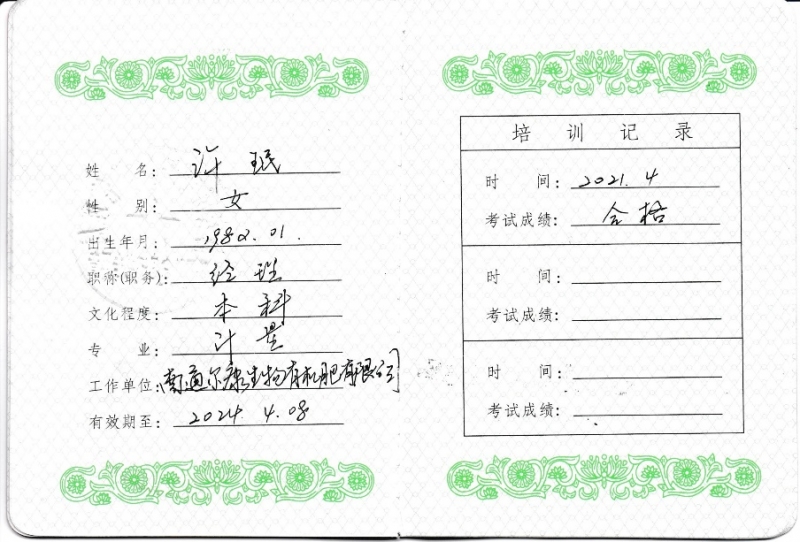 姓 名：许珉
性 别：女
出生年月：1982.01.
职称(职务)：经理
文化程度：本科
专 业：计量
工作单位：南通尔康生物有机肥有限公司
有效期至：2024.4.08
培训记录
时 间：2021.4
考试成绩：合格
时 间：
考试成绩：
时 间：
考试成绩：